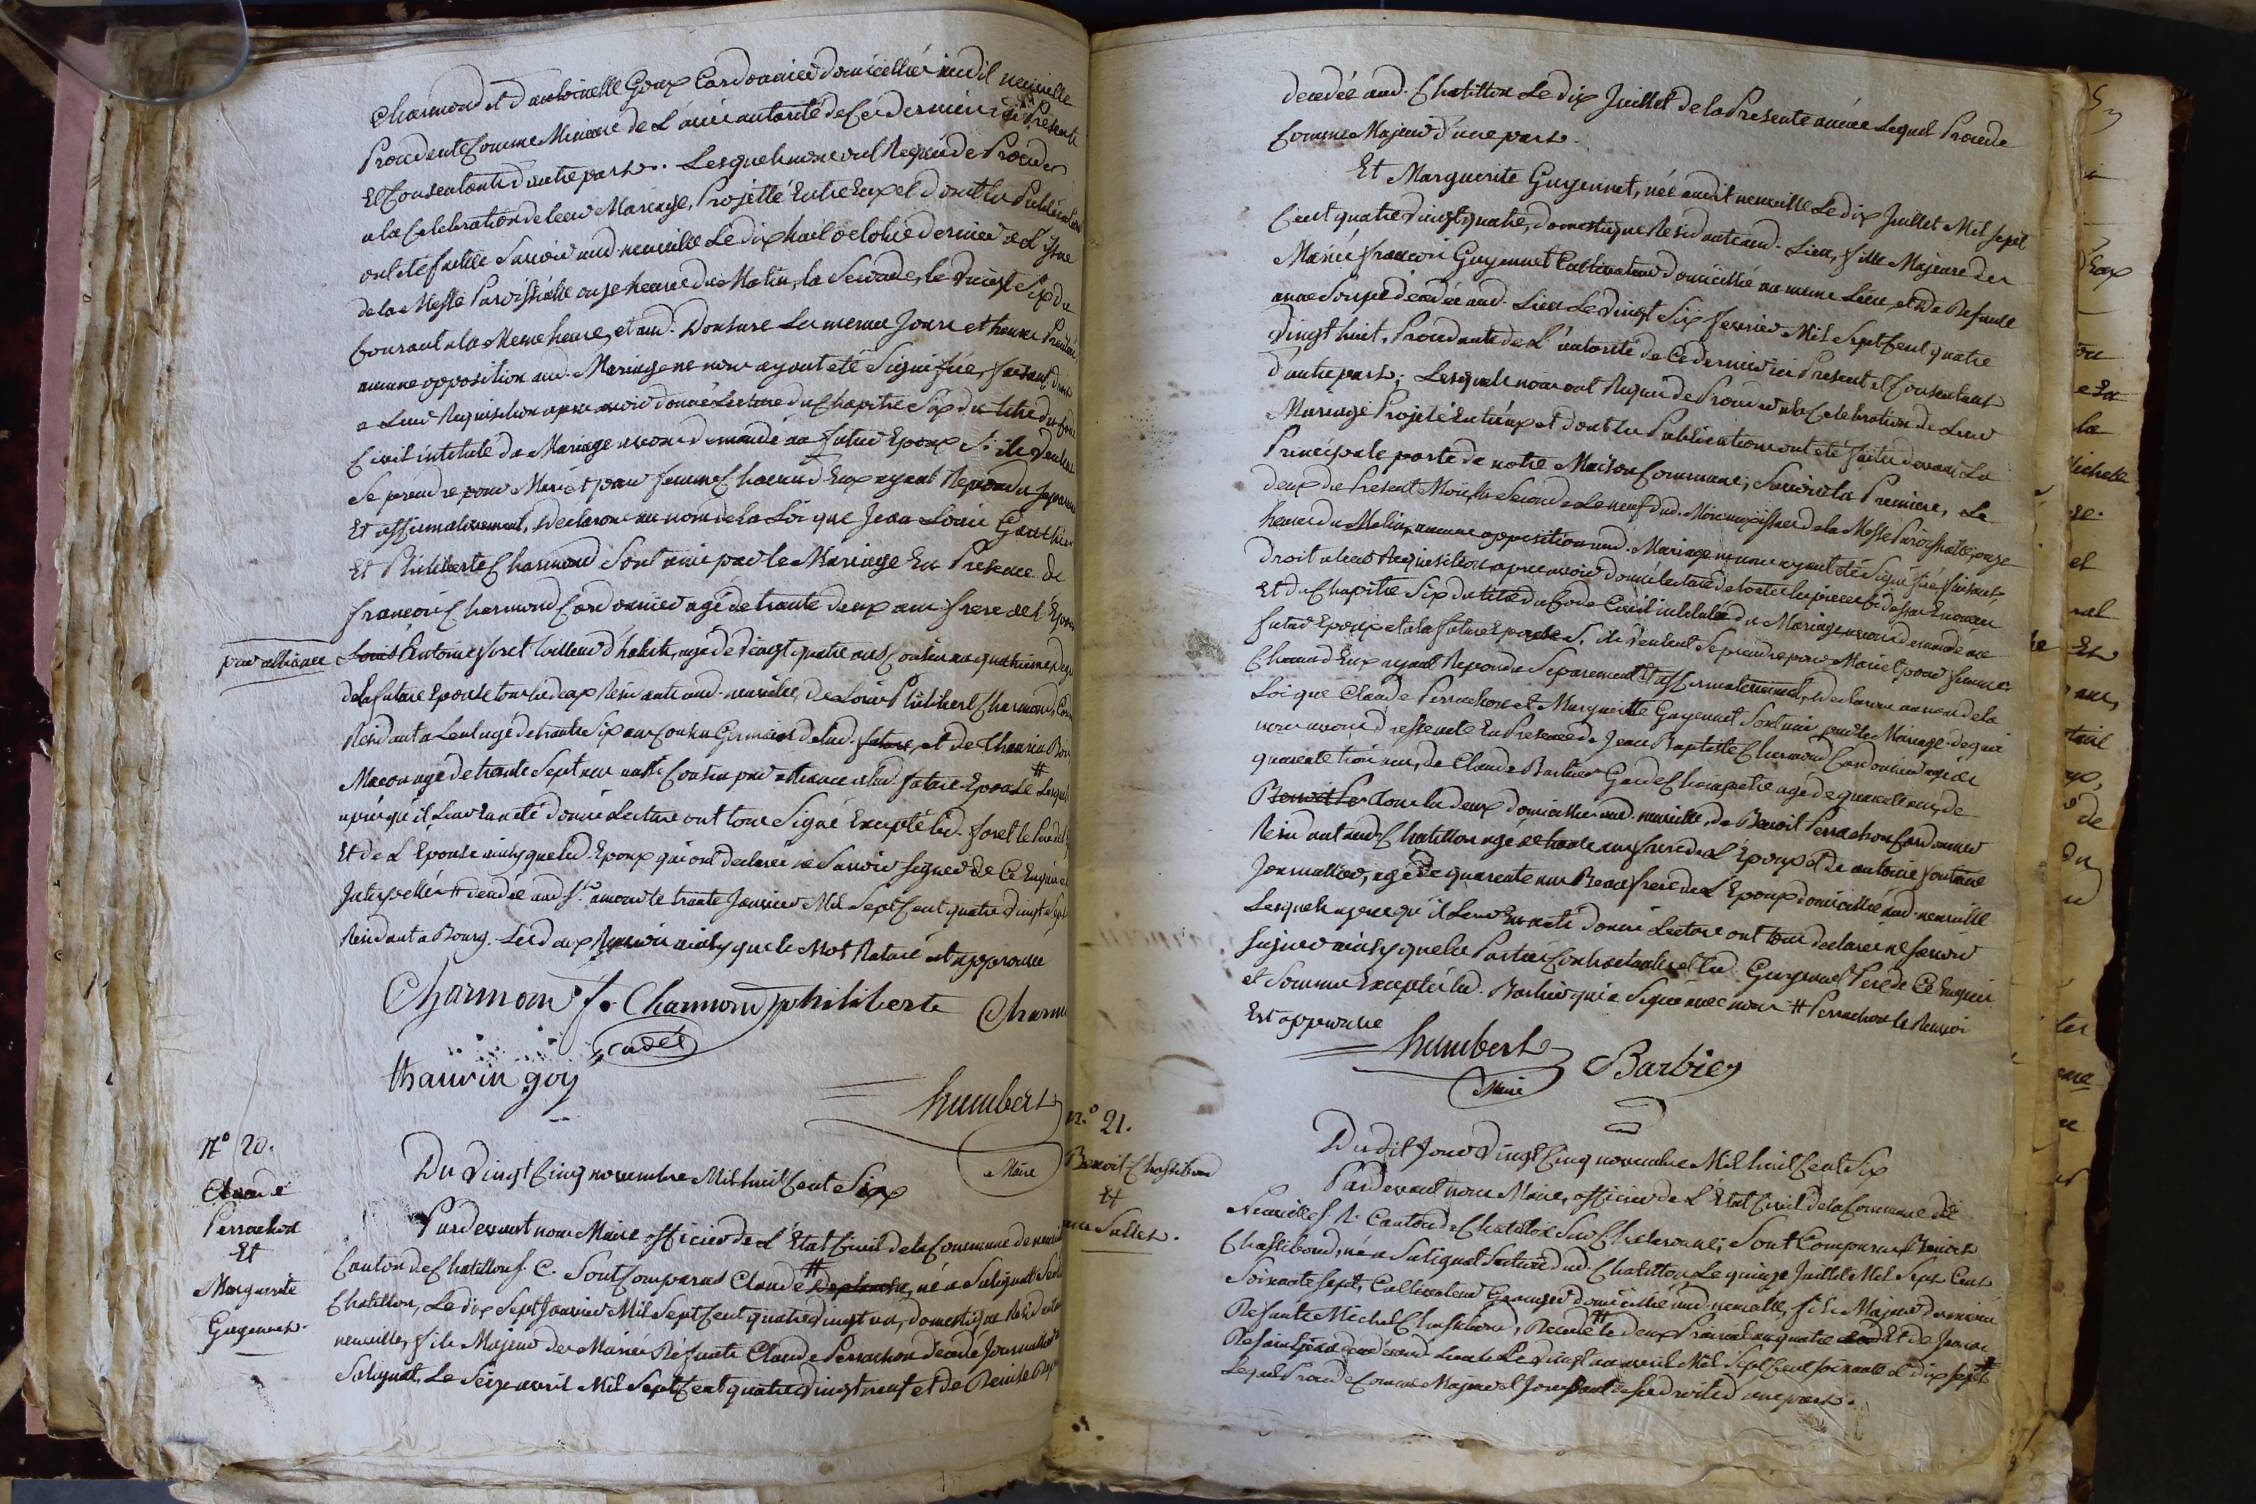 Charmond et d'antoinette Goux Cordonnier domicillié audit neuville
Procedente Comme Mineure de L'autorité de Ce dernier ici Présent
Et Consentant d'autre part. Lesquels nous ont Requis de Proceder
a la Celebration de leur Mariage, Projetté Entre Eux et dont les Publications
ont été faittes Savoir aud. neuville Le dix huit octobre dernier a L'issue
de la Messe Paroissialle onze heures du Matin, la Seconde, le vingt Six du
Courant a la Meme heure, et aud. Domsure les memes Jours et heures
aucune opposition aud. Mariage ne nous ayant été Signifiée, faisant droit
a Leur Requisition apres avoir donné Lecture du Chapitre Six du titre du Code
Civil intitulé du Mariage avons demandé au futur Epoux S'ils veulent
Se prendre pour Mari et pour femme Chacun d'Eux ayant Repondu Separement
Et affirmativement, declarons au nom de la Loi que Jean Louis Gauthier
Et Philiberte Charmond Sont unis par le Mariage En Presence de
françois Charmond Cordonnier agé de trente deux ans frere de L'Epouse
par alliance
Louis Antoine foret tailleur d'habits, agé de vingt quatre ans Cousin au quatrieme degré
de la future Epouse tous les deux Residants aud. neuville, de Louis Philibert Charmond,
Residant a Lent agé de trente Six ans Cousin Germain de lad. future, et de Thauvin Goy
Macon agé de trente Sept ans aussi Cousin par alliance a lad. future Epouse # Lesquels
apres qu'il Leur En a été donné Lecture ont tous Signé Excepté led. foret le Pere
Et de L'Epouse ainsy que led. Epoux qui ont declaré ne Savoir Signer de Ce Enquis et
Interpellés # decedée aud. St. amour le trente Janvier Mil Sept Cent quatre vingt Sept
Residant a Bourg. Les deux Renvois ainsy que le Mot Raturé est approuvé
Charmond f. Charmond philiberte Charmond
Cadet
thauvin goy
humbert
Maire
N° 20.
Claude
Perrachon
Et
Marguerite
Guyennet.
Du vingt Cinq novembre Mil huit Cent Six
Pardevant nous Maire officier de L'Etat Civil de la Commune de neuville
Canton de Chatillon S. C. Sont Comparus Claude # , né a Sulignat
Chatillon, Le dix Sept Janvier Mil Sept Cent quatre vingt un, domestique Residant a
neuville, fils Majeur des Mariés Défunts Claude Perrachon decedé Journallier
Sulignat, Le Seize avril Mil Sept Cent quatre vingt neuf et de Benoite
decedée aud. Chatillon Le dix Juillet de la Presente année Lequel Procede
Comme Majeur d'une part.
Et Marguerite Guyennet, née audit neuville Le dix Juillet Mil Sept
Cent quatre vingt quatre, domestique Residante aud. Lieu, fille Majeure des
Mariés françois Guyennet Cultivateur domicillié au meme Lieu, et De Defunte
anne Soupe decedée aud. Lieu Le vingt Six fevrier Mil Sept Cent quatre
vingt huit, Procedante de L'autorité de Ce dernier ici Present et Consentant
d'autre part; Lesquels nous ont Requis de Proceder a la Celebration de Leur
Mariage Projeté Entr'eux et dont les Publications ont été faites devant La
Principale porte de notre Maison Commune; Savoir la Premiere, Le
deux du Present Mois, la Seconde Le neuf dud. Mois aux issues de la Messe Paroissialle, onze
heures du Matin, aucune opposition aud. Mariage ne nous ayant été Signifiée faisant
droit a leur Requisition apres avoir donné lecture de toutes les pieces Ci dessus Enoncées
Et du Chapitre Six du titre du Code Civil intitulé du Mariage avons demandé au
futur Epoux et a la future Epouse S'ils veulent Se prendre pour Mari et pour femme
Chacun d'Eux ayant Repondu Separement Et affirmativement, declarons au nom de la
Loi que Claude Perrachon et Marguerite Guyennet Sont unis par le Mariage de quoi
nous avons dressé acte En Presence de Jean Baptiste Charmond Cordonnier agé de
quarente trois ans, de Claude Barbier Garde Champetre agé de quarente ans, de
tous les deux domiciliés aud. neuville, de Benoit Perrachon Cordonnier
Residant aud. Chatillon agé de trente ans frere de L'Epoux et de antoine fontaine
Journallier, agé de quarente ans Beau frere de L'Epoux domicillié aud. neuville
Lesquels apres qu'il Leur En a été donné Lecture ont tous declaré ne Savoir
Signer ainsy que les Parties Contractantes et led. Guyennet Pere de Ce Enquis
et Sommés Excepté led. Barbier qui a Signé avec nous # Perrachon le Renvoi
Est approuvé
humbert Barbier
Maire
n° 21.
Benoit Chassibond
Et
Sullet.
Du dit Jour vingt Cinq novembre Mil huit Cent Six
Pardevant nous Maire, officier de L'Etat Civil de la Commune de
Neuville S. R. Canton de Chatillon Sur Chalaronne; Sont Comparus Benoit
Chassibond, né a Sulignat Canton dud. Chatillon, Le quinze Juillet Mil Sept Cent
Soixante Sept, Cultivateur Granger domicillié aud. neuville, fils Majeur des mariés
Defunts Michel Chassibond, Decedé # le deux Prairial an quatre Et de Jeanne
decedée aud. Lieu Le vingt un avril Mil Sept Cent Soixante et dix Sept #
Lequel Procede Comme Majeur et Jouissant de ses droits d'une part.